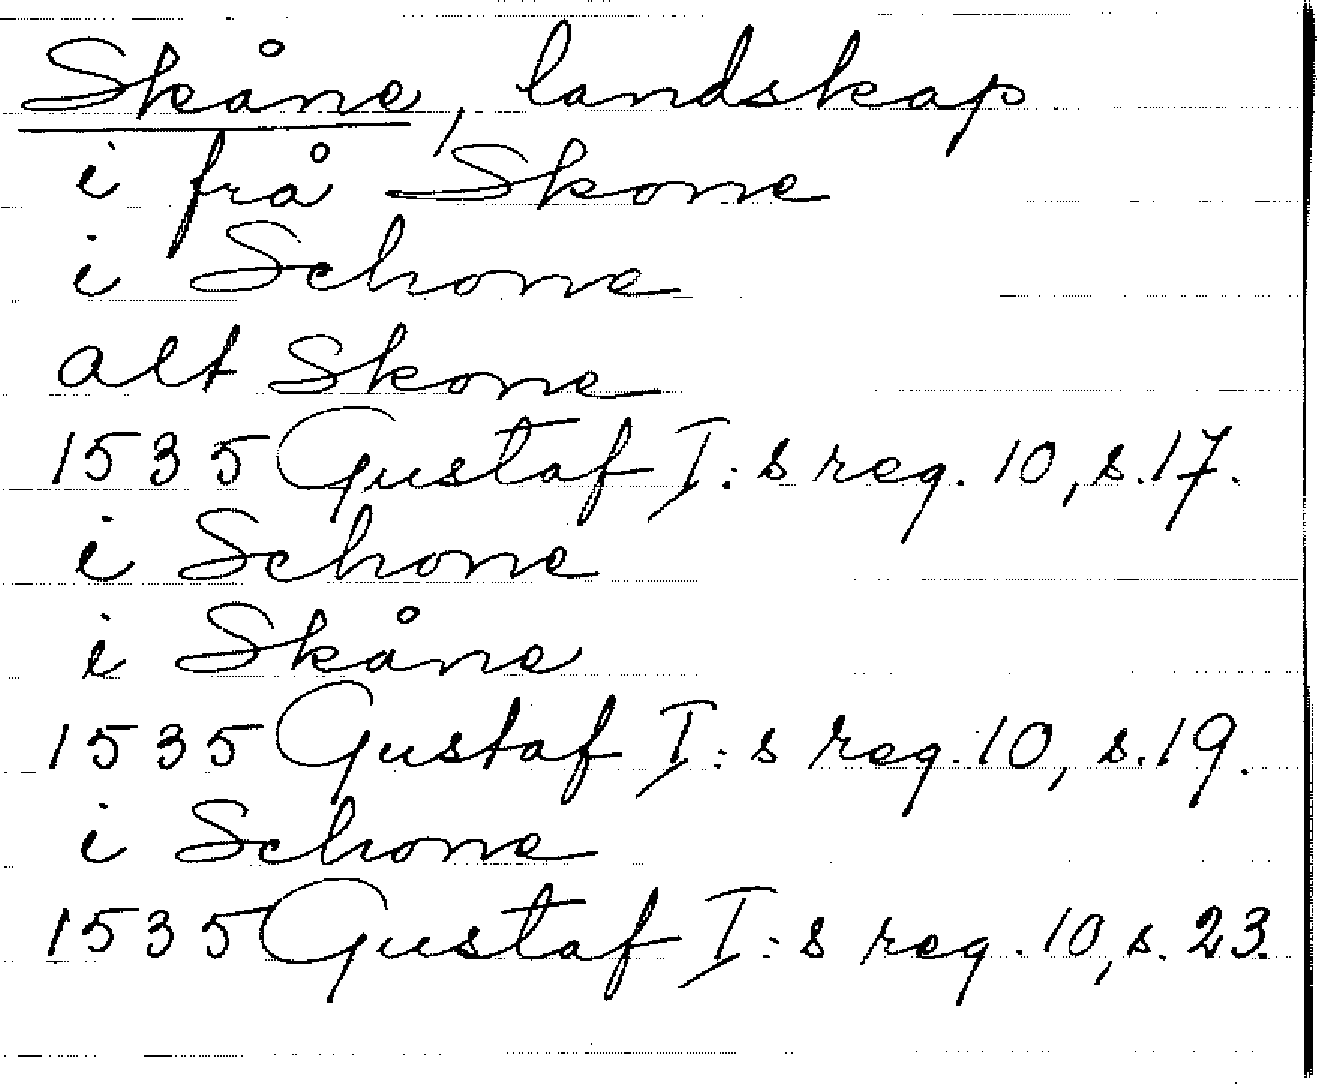 Skåne, landskap
i frå Skone
i Schone
alt Skone
1535 Gustaf I:s reg. 10, s. 17.
i Schone
i Skåne
1535 Gustaf I:s reg. 10, s. 19.
i Schone
1535 Gustaf I:s reg. 10, s. 23.